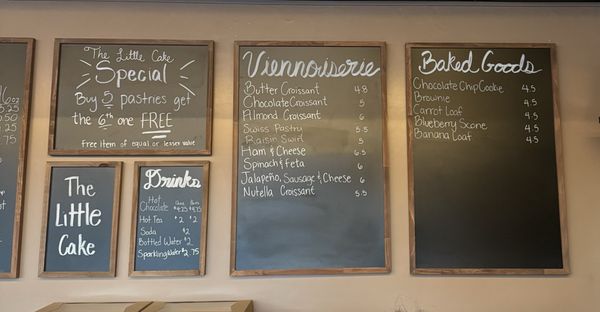 The Little Cake
Special
Buy 5 pastries get
the 6th one FREE
Free items of equal or lesser value
The
Little
Cake
Drinks
Hot
Chocolate $4.25 $4.75
Hot Tea $2 $2
Soda $2
Bottled Water $2
Sparkling Water $2.75
Viennoiserie
Butter Croissant 4.8
Chocolate Croissant 5
Almond Croissant 6
Swiss Pastry 5.5
Raisin Swirl 5
Ham & Cheese 6.5
Spinach & Feta 6
Jalapeño, Sausage & Cheese 6
Nutella Croissant 5.5
Baked Goods
Chocolate Chip Cookie 4.5
Brownie 4.5
Carrot Loaf 4.5
Blueberry Scone 4.5
Banana Loaf 4.5